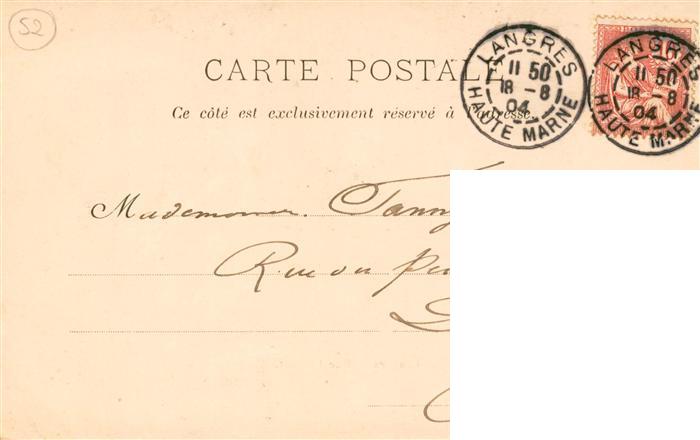 52
CARTE POSTALE
Ce côté est exclusivement réservé à l'adresse.
LANGRES
11 50
18 - 8
04
HAUTE MARNE
10
LANGRES
11 50
18 - 8
04
HAUTE MARNE
Mademoiselle Fanny
Rue du